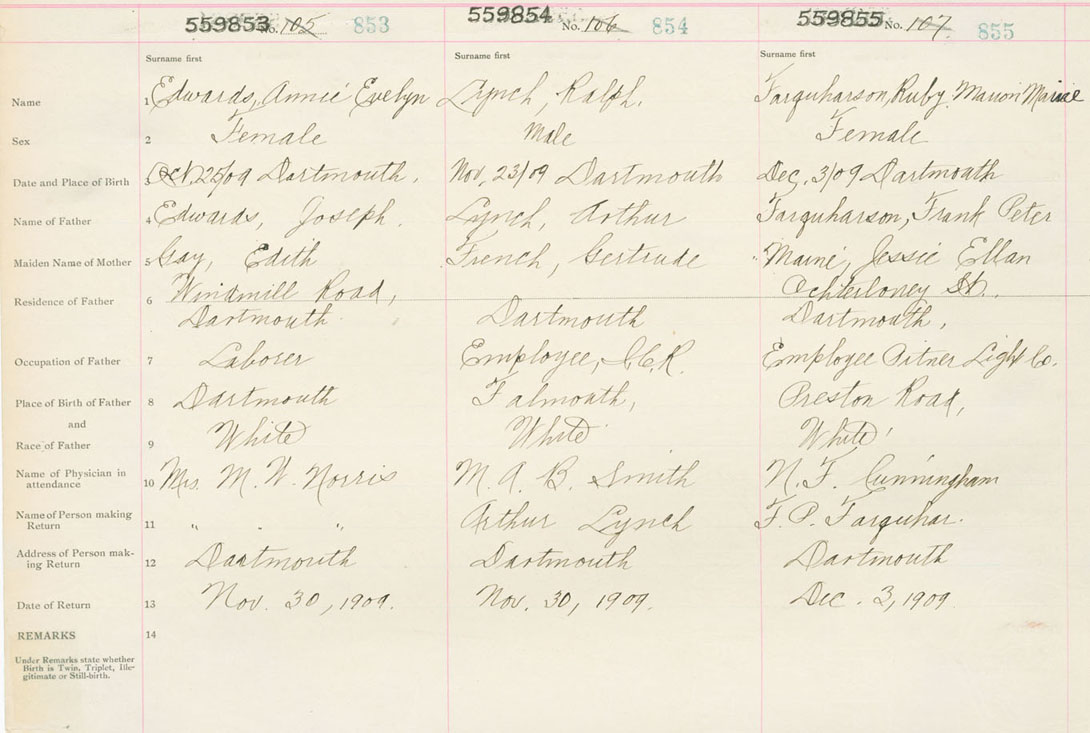 559853 No. 105 853
559854 No. 106 854
559855 No. 107. 855
Surname first Surname first Surname first
Name 1 Edwards, Annie Evelyn Lynch, Ralph. Farquharson, Ruby. Marion Marine
Sex 2 Female Male Female
Date and Place of Birth 3 Oct, 25/09 Dartmouth. Nov, 23/09 Dartmouth Dec, 3/09 Dartmouth
Name of Father 4 Edwards, Joseph. Lynch, Arthur Farquharson, Frank Peter
Maiden Name of Mother 5 Gay, Edith French, Gertrude Maine, Jessie Ellan
Residence of Father 6 Windmill Road, Ochterloney St.,
Dartmouth Dartmouth Dartmouth,
Occupation of Father 7 Laborer Employee, I.C.R. Employee Pitner Light Co.
Place of Birth of Father 8 Dartmouth Falmouth, Preston Road,
and
Race of Father 9 White White White
Name of Physician in
attendance 10 Mrs. M. W. Norris M. A. B. Smith N. F. Cunningham
Name of Person making
Return 11 " . " Arthur Lynch F. P. Farquhar.
Address of Person mak-
ing Return 12 Dartmouth Dartmouth Dartmouth
Date of Return 13 Nov. 30, 1909. Nov. 30, 1909. Dec. 3, 1909
REMARKS 14
Under Remarks state whether
Birth is Twin, Triplet, Ille-
gitimate or Still-birth.